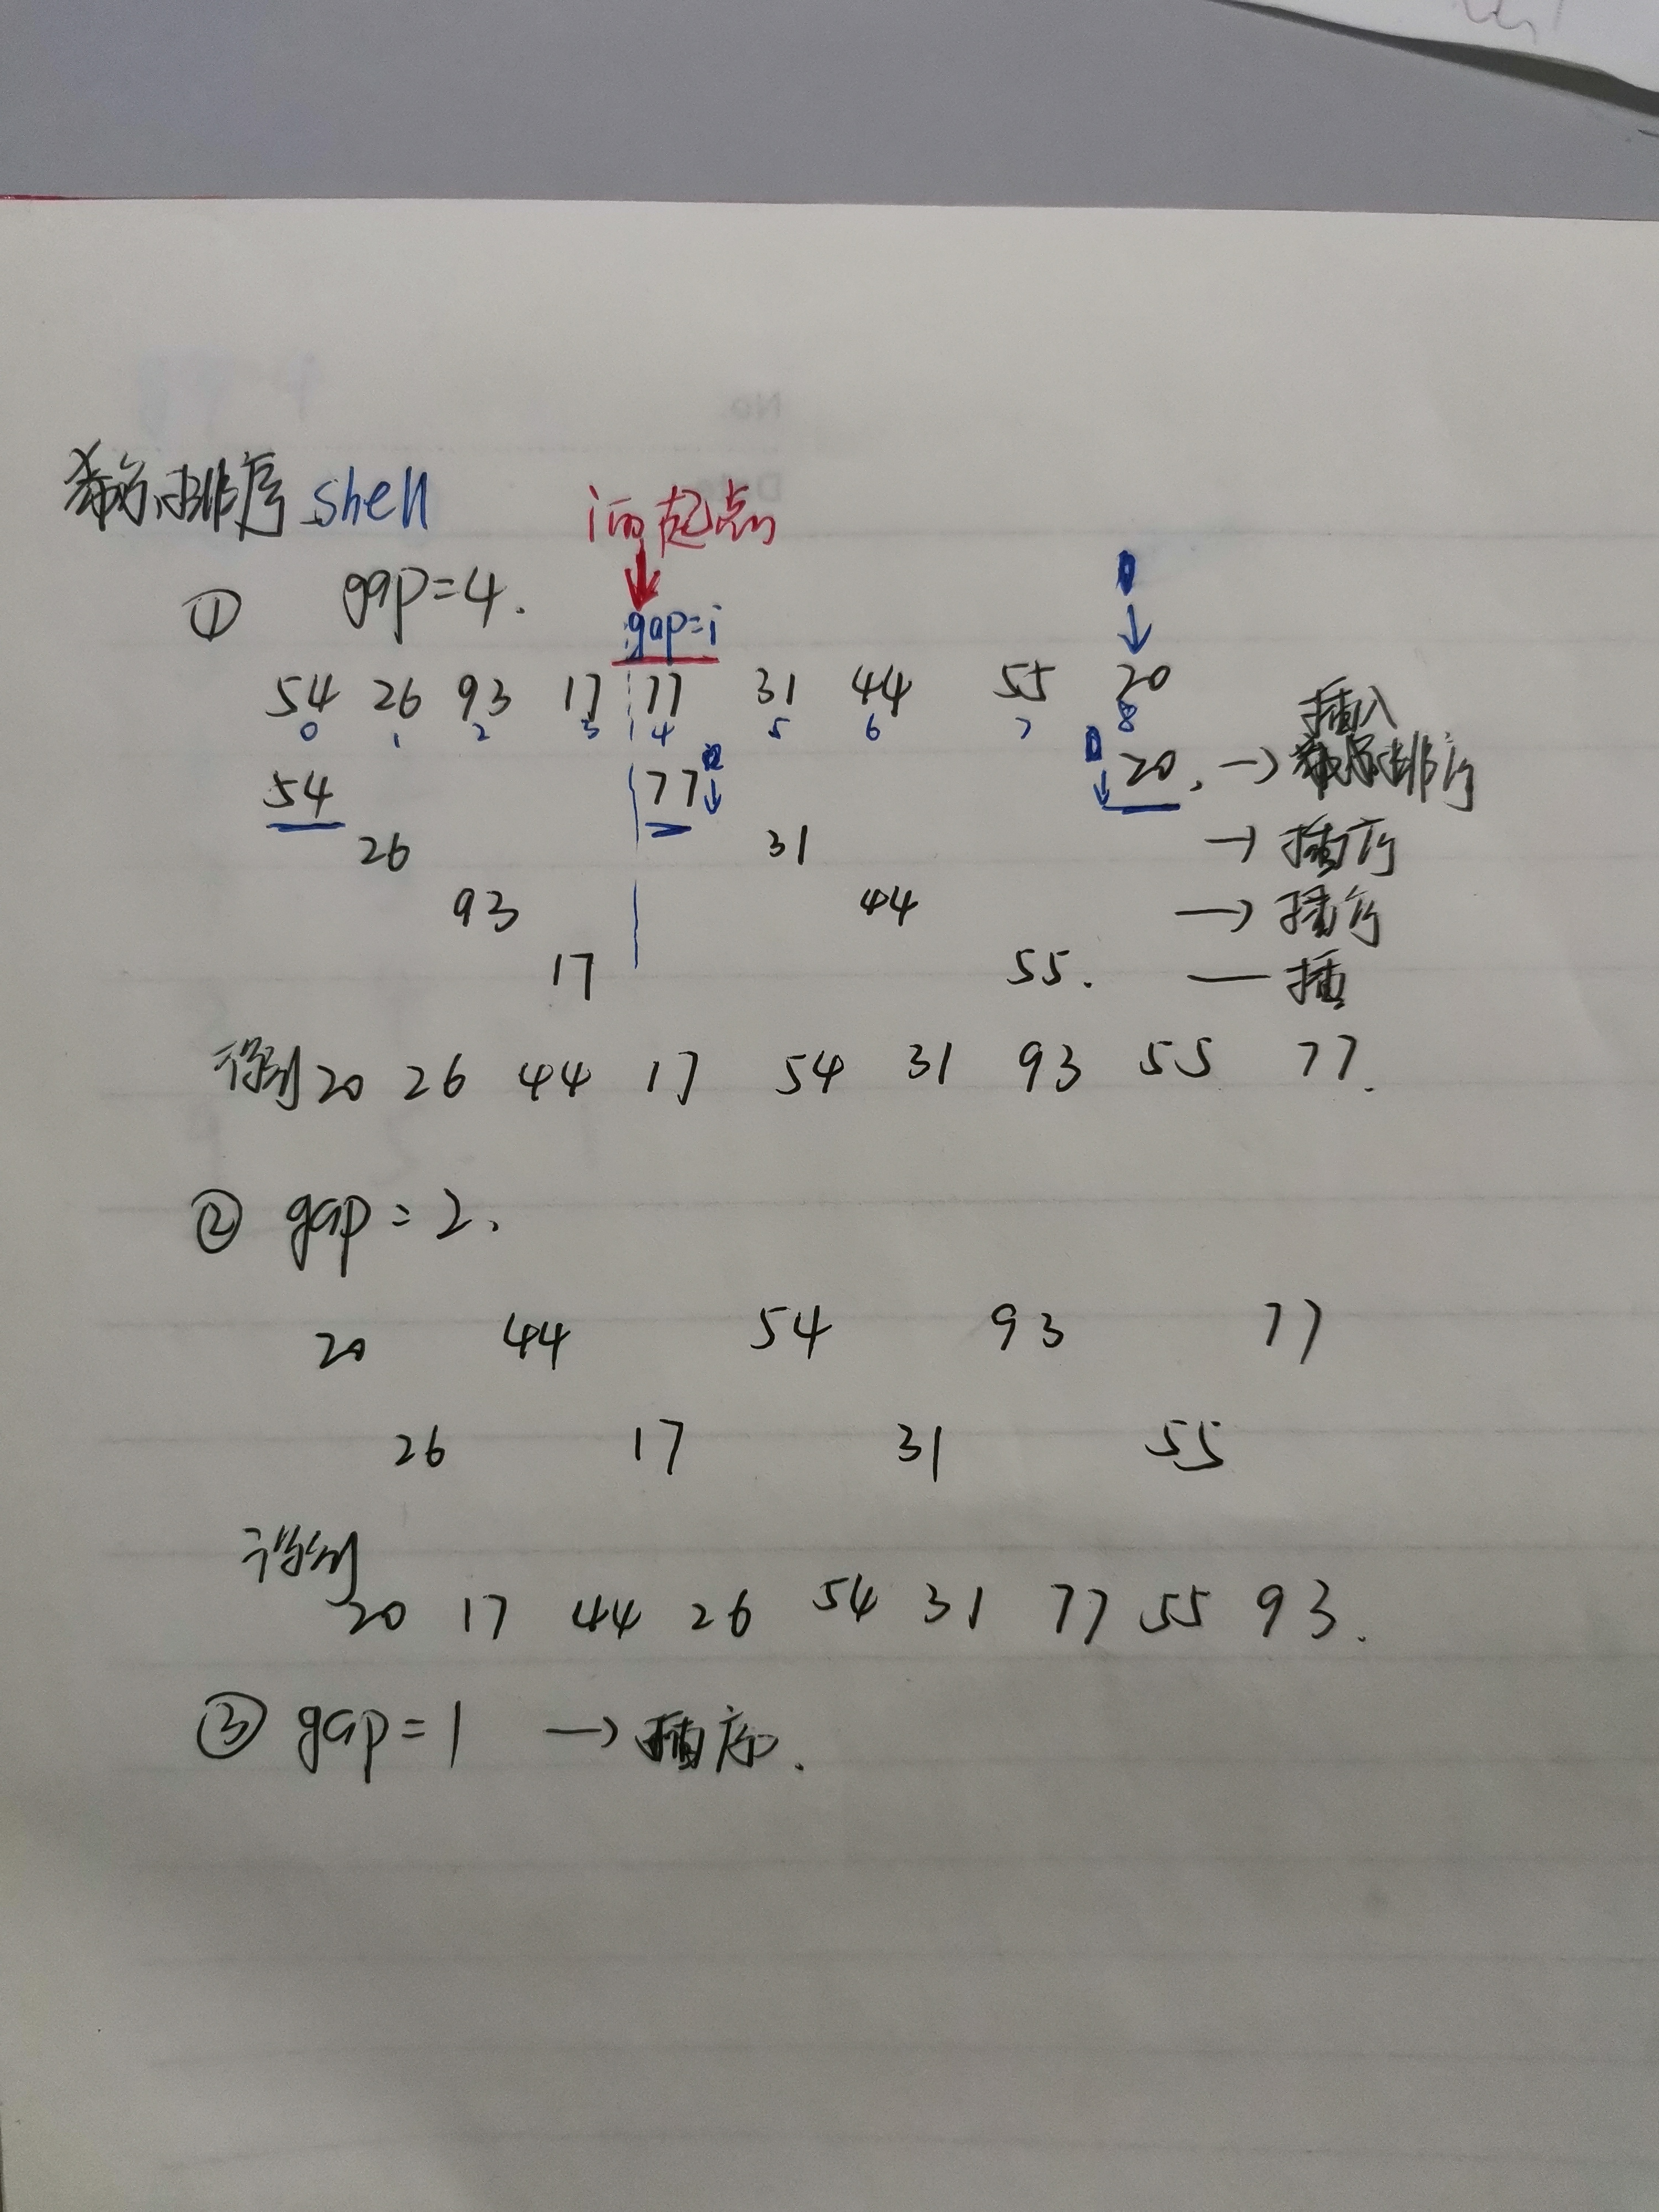 希尔排序 shell
i的起点
① gap=4.
gap=i
54 26 93 17 77 31 44 55 20
0 1 2 3 4 5 6 7 8
插入
54 77 20. → 排序
26 31 → 插序
93 44 → 插序
17 55. — 插
得到 20 26 44 17 54 31 93 55 77.
② gap=2.
20 44 54 93 77
26 17 31 55
得到
20 17 44 26 54 31 77 55 93.
③ gap=1 → 插序.